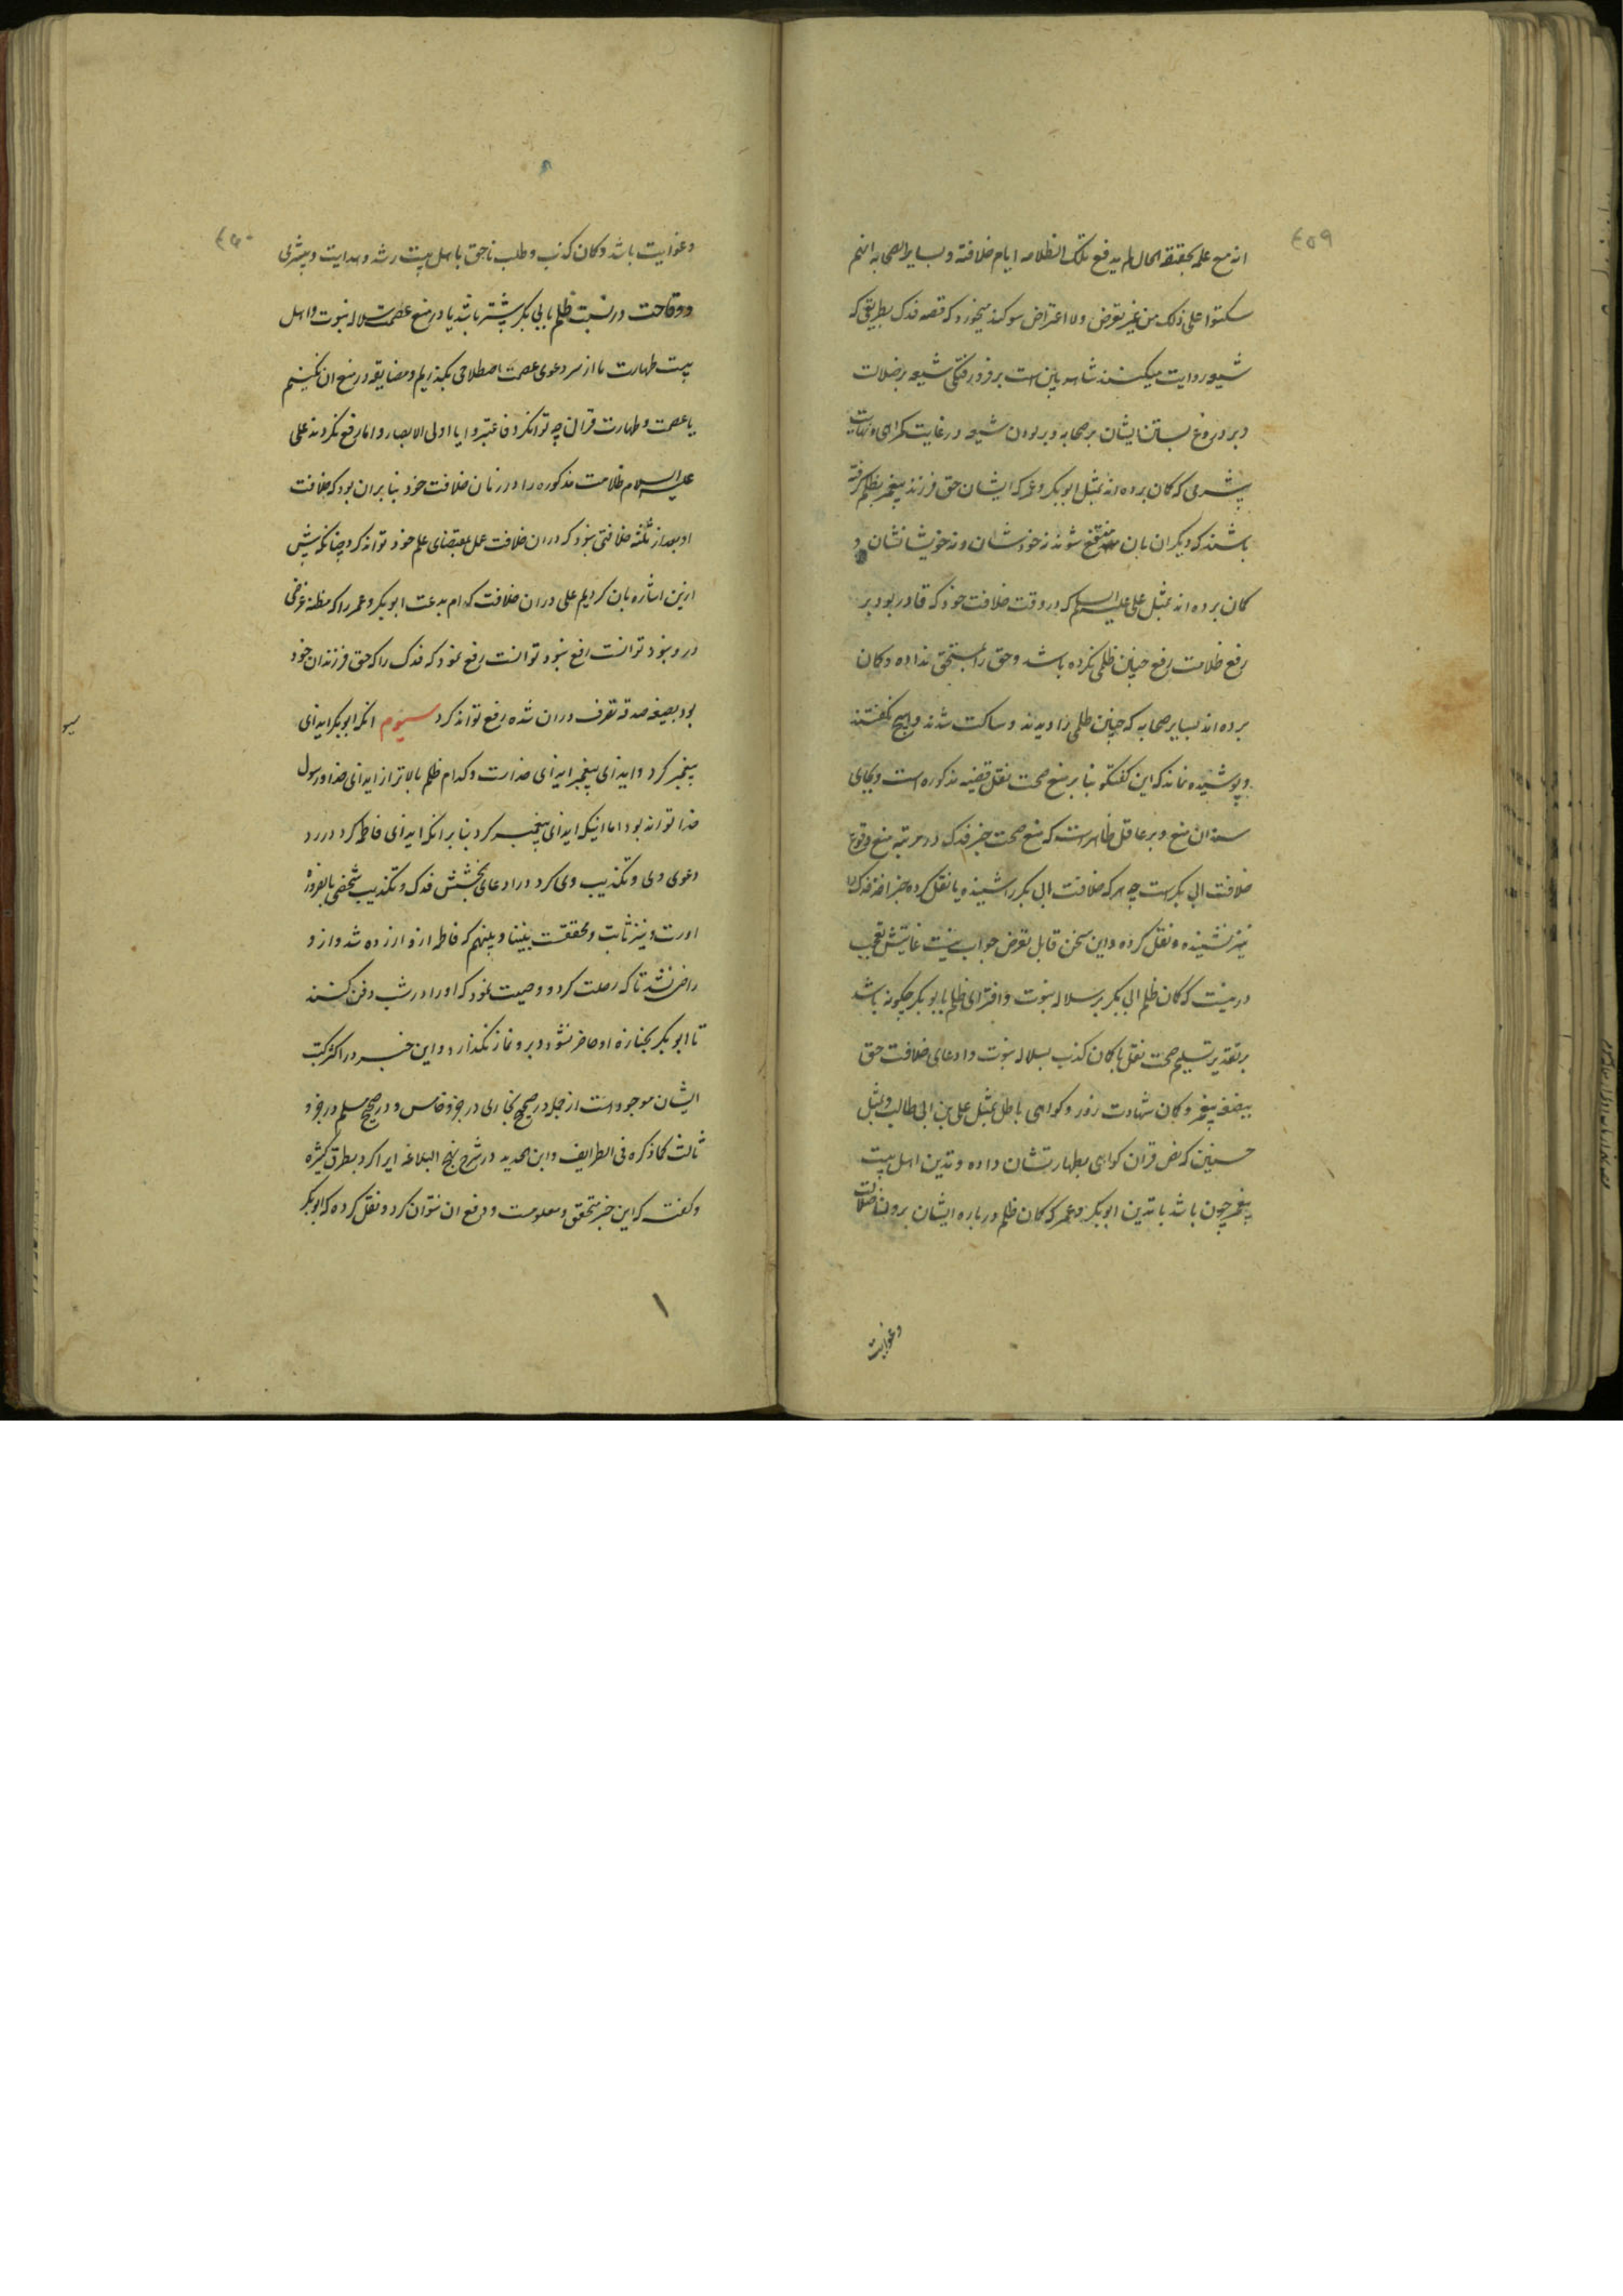 ٤٥٩
انه مع علمه بحقیقة الحال لم یدفع تلک الظلامه ایام خلافته و بسایر الصحابه انهم
سکتوا علی ذلک من غیر تعرض ولا اعتراض سوکند میخورد که قصه فدک بطریقی که
شیعه روایت میکنند شاهد یقین است بر فرو رفتکی شیعه بر ضلالت
و بر دروغ بستن ایشان بر صحابه و بر بودن شیعه در غایت کمراهی و نهایت
بیشرمی که کمان برده اند بمثل ابوبکر و عمر که ایشان حق فرزند پیغمبر بظلم کرفته
باشند که دیکران بان منتفع شوند نه خودشان و نه خویشانشان و
کمان برده اند بمثل علی علیه السلم که در وقت خلافت خود که قادر بود بر
رفع ظلامت رفع چنین ظلمی نکرده باشد و حق را بمستحق نداده و کمان
برده اند بسایر صحابه که چنین ظلمی را دیدند و ساکت شدند و هیچ نکفتند
و پوشیده نماند که این کفتکو بنا بر منع صحت نقل قضیه مذکوره است و بجای
سند ان منع و بر عاقل ظاهر است که منع صحت خبر فدک در مرتبه منع وقوع
خلافت ابی بکر است چه هر که خلافت ابی بکر را شنیده یا نقل کرده خبر اخذ فدک را
نیز شنیده و نقل کرده و این سخن قابل تعرض جواب نیست غایتش تعجب
درینست که کمان ظلم ابی بکر بر سلاله نبوت و افترای ظلم بابوبکر چکونه باشد
بر تقدیر تسلیم صحت نقل با کمان کذب بسلاله نبوت و ادعای خلافت حق
ببضعه پیغمبر و کمان شهادت زور و کواهی باطل بمثل علی بن ابی طالب و بمثل
حسنین که نص قران کواهی بطهارتشان داده و تدین اهل بیت
پیغمبر چون باشد با تدین ابوبکر و عمر که کمان ظلم درباره ایشان بر ضلالت
وغوایت
٤٦٠
و غوایت باشد و کمان کذب و طلب ناحق باهل بیت رشد و هدایت و بیشرمی
و وقاحت در نسبت ظلم بابی بکر بیشتر باشد یا در منع عصمت سلاله نبوت و اهل
بیت طهارت ما از سر دعوی عصمت اصطلاحی بکذریم و مضایقه در منع ان نکنیم
با عصمت و طهارت قران چه توان کرد فاعتبروا یا اولی الابصار و اما رفع نکردند علی
علیه السلام ظلامت مذکوره را در زمان خلافت خود بنا بر ان بود که خلافت
او بعد از ثلثه خلافتی نبود که در ان خلافت عمل بمقتضای علم خود تواند کرد چنانکه پیش
ازین اشاره بان کردیم علی در ان خلافت کدام بدعت ابوبکر و عمر را که مظنه غرضی
درو نبود توانست رفع نمود توانست رفع نمود که فدک را که حق فرزندان خود
بود بصیغه صدقه تصرف در ان شده رفع تواند کرد سیوم انکه ابوبکر ایذای
پیغمبر کرد و ایذای پیغمبر ایذای خداست و کدام ظلم بالاتر از ایذای خدا و رسول
خدا تواند بود اما اینکه ایذای پیغمبر کرد بنا بر انکه ایذای فاطمه کرد در رد
دعوی وی و تکذیب وی کرد در ادعای بخشش فدک و تکذیب شخصی بالضروره
اوست و نیز ثابت و محققست بیننا و بینهم که فاطمه ازو ازرده شد و از و
راضی نشد تا که رحلت کرد و وصیت نمود که او را در شب دفن کنند
تا ابوبکر بجنازه او حاضر نشود و برو نماز نکذارد و این خبر در اکثر کتب
ایشان موجود است از جمله در صحیح بخاری در جزو خامس و در صحیح مسلم در جزو
ثالث کما ذکره فی الطرایف و ابن الحدید در شرح نهج البلاغه ایراد کرد بطرق کثیره
و کفت که این خبر متحقق و معلومست و دفع ان نتوان کرد و نقل کرده که ابوبکر